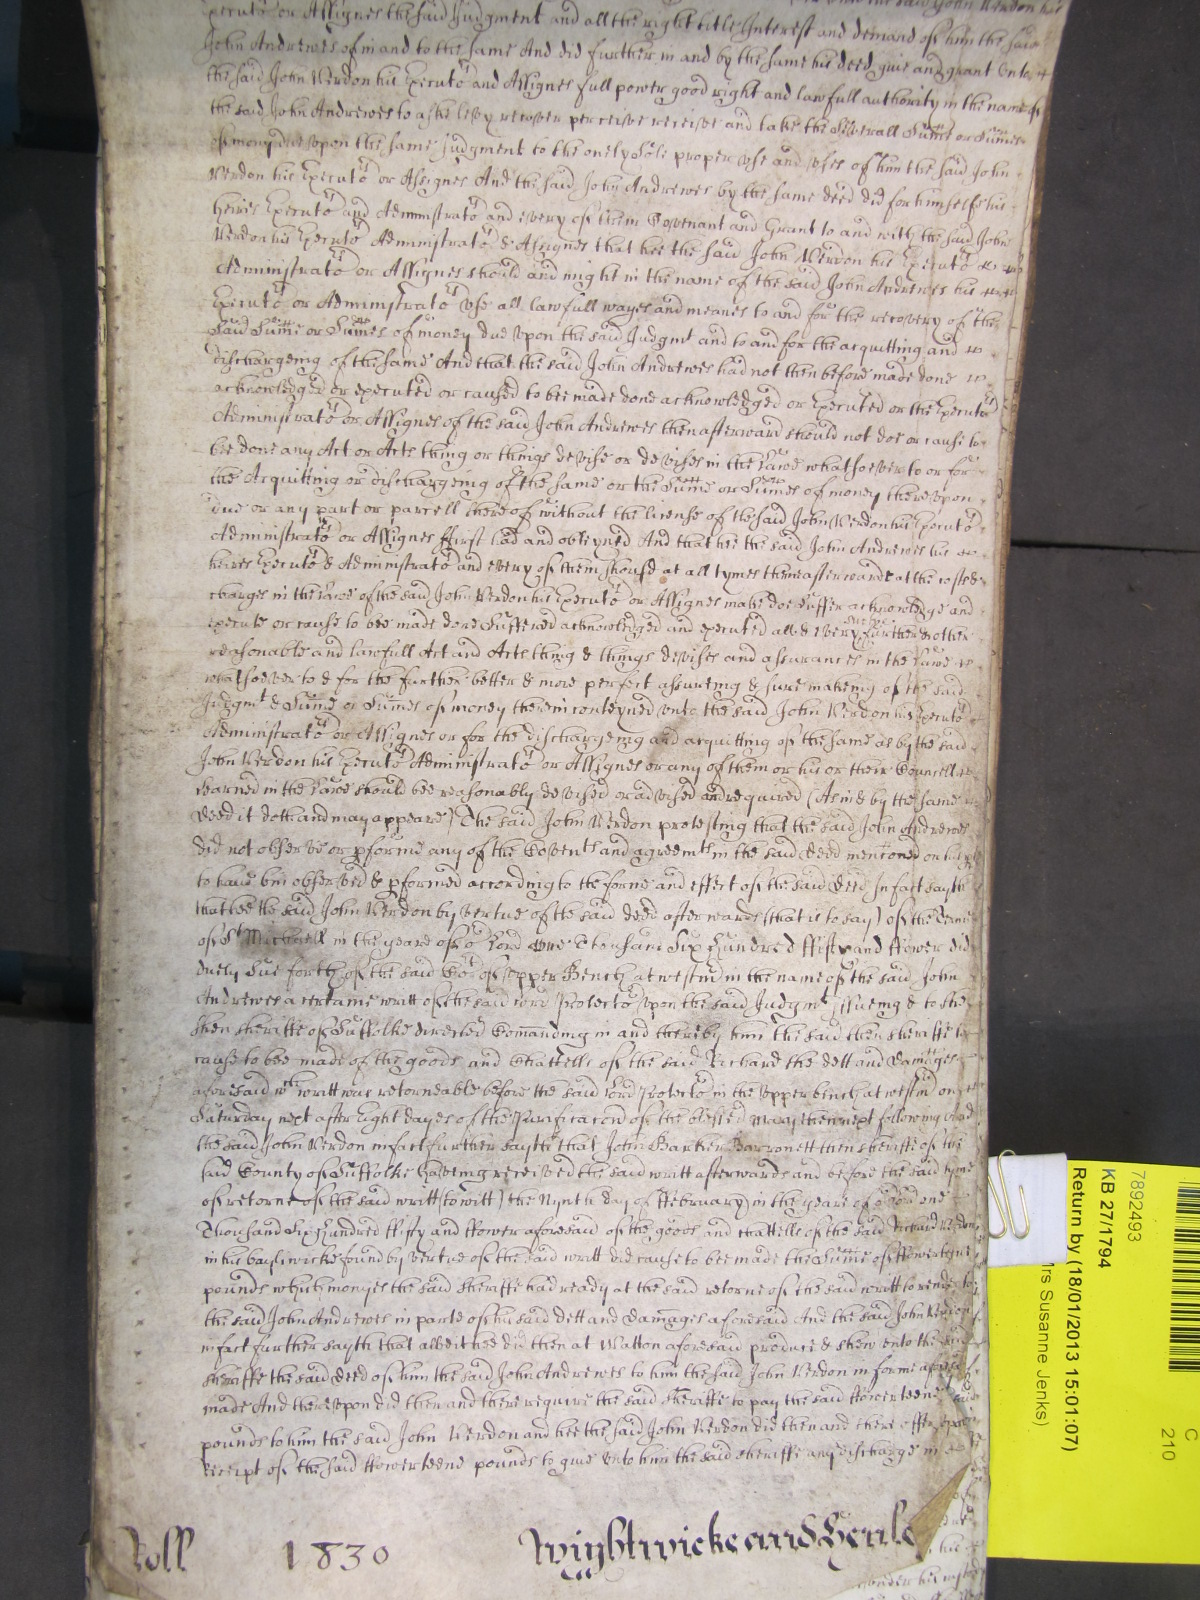 the said John Verdon his
Executors or Assignes the said Judgment and all the right title Interest and demand of him the said
John Andrewes of in and to the same And did further in and by the same his deed give and grant unto
the said John Verdon his Executors and Assignes full power good right and lawfull authority in the name of
the said John Andrewes to aske levy recover perceive receive and take the severall Summe or Summes
of mony due upon the same Judgment to the onely sole proper use and uses of him the said John
Verdon his Executors or Assignes And the said John Andrewes by the same deed did for himselfe his
heires Executors and Administrators and every of them Covenant and Grant to and with the said John
Verdon his Executors Administrators & Assignes that hee the said John Verdon his Executors
Administrators or Assignes should and might in the name of the said John Andrewes his
Executors or Administrators use all lawfull wayes and meanes to and for the recovery of the
said Summe or Summes of money due upon the said Judgmt and to and for the acquitting and
dischargeing of the same And that the said John Andrewes had not then before made done
acknowledged or executed or caused to bee made done acknowledged or Executed or the Executors
Administrators or Assignes of the said John Andrewes then afterward should not doe or cause to
bee done any Act or Acts thing or things devise or devises in the Lawe whatsoever to or for
the Acquitting or dischargeing of the same or the Summe or Summes of money thereupon
due or any part or parcell thereof without the license of the said John Verdon his Executors
Administrators or Assignes ffirst had and obteyned And that hee the said John Andrewes his
heires Executors & Administrators and every of them should at all tymes then afterwards at the costs &
charges in the Lawe of the said John Verdon his Executors or Assignes make doe suffer acknowledge and
execute or cause to bee made done suffered acknowledged and executed all & every such further & other
reasonable and lawfull Act and Acts thing & things devises and assurances in the Lawe
whatsoever to & for the further better & more perfect assureing & sure makeing of the said
Judgmt & Summe or Summes of money therein conteyned unto the said John Verdon his Executors
Administrators or Assignes or for the dischargeing and acquitting of the same as by the said
John Verdon his Executors Administrators or Assignes or any of them or his or their Councell
learned in the Lawe should bee reasonably devised or advised and required (As in & by the same
deed it doth and may appeare) The said John Verdon protesting that the said John Andrewes
did not observe or pforme any of the Covents and agreemts in the said deed mentioned on his pt
to have bin observed & pformed according to the forme and effect of the said deed In fact sayth
that hee the said John Verdon by vertue of the said deed afterwards (that is to say) of the Terme
of St Michaell in the yeare of or Lord One Thousand Six Hundred ffifty and ffower did
duely sue forth of the said Cort of Upper Bench at westmr in the name of the said John
Andrewes a certaine writt of the said Lord Protector upon the said Judgmt Issueing & to the
then sheriffe of Suffolke directed Comanding in and thereby him the said then sheriffe to
cause to bee made of the goods and Chattells of the said Richard the dett and damages
aforesaid wch writt was retorneable before the said Lord Protector in the Upper bench at westmr on
Saturday next after Eight dayes of the Purificacon of the Blessed Mary then next following And
the said John Verdon in fact further sayth that John Barker Barronett then sheriffe of the
said County of Suffolke haveing received the said writt afterwards and before the said tyme
of retorne of the said writt (to witt) the Nynth day of ffebruary in the yeare of or Lord one
Thousand Six Hundred ffifty and ffower aforesaid of the goods and chattells of the said Richard
in his bayliwicke found by vertue of the said writt did cause to bee made the Summe of ffowerteene
pounds which monyes the said sheriffe had ready at the said retorne of the said writt to render to
the said John Andrewes in parte of his said dett and damages aforesaid And the said John Verdon
in fact further sayth that albeit hee did then at Walton aforesaid produce & shew unto the said
sheriffe the said deed of him the said John Andrewes to him the said John Verdon in forme aforesaid
made And thereupon did then and there require the said sheriffe to pay the said ffowerteene
pounds to him the said John Verdon and hee the said John Verdon did then and there offer upon
receipt of the said ffowerteene pounds to give unto him the said sheriffe any discharge in
Roll 1830 Wightwicke and Henle
7892493
KB 27/1794
Return by (18/01/2013 15:01:07)
rs Susanne Jenks)
C
210